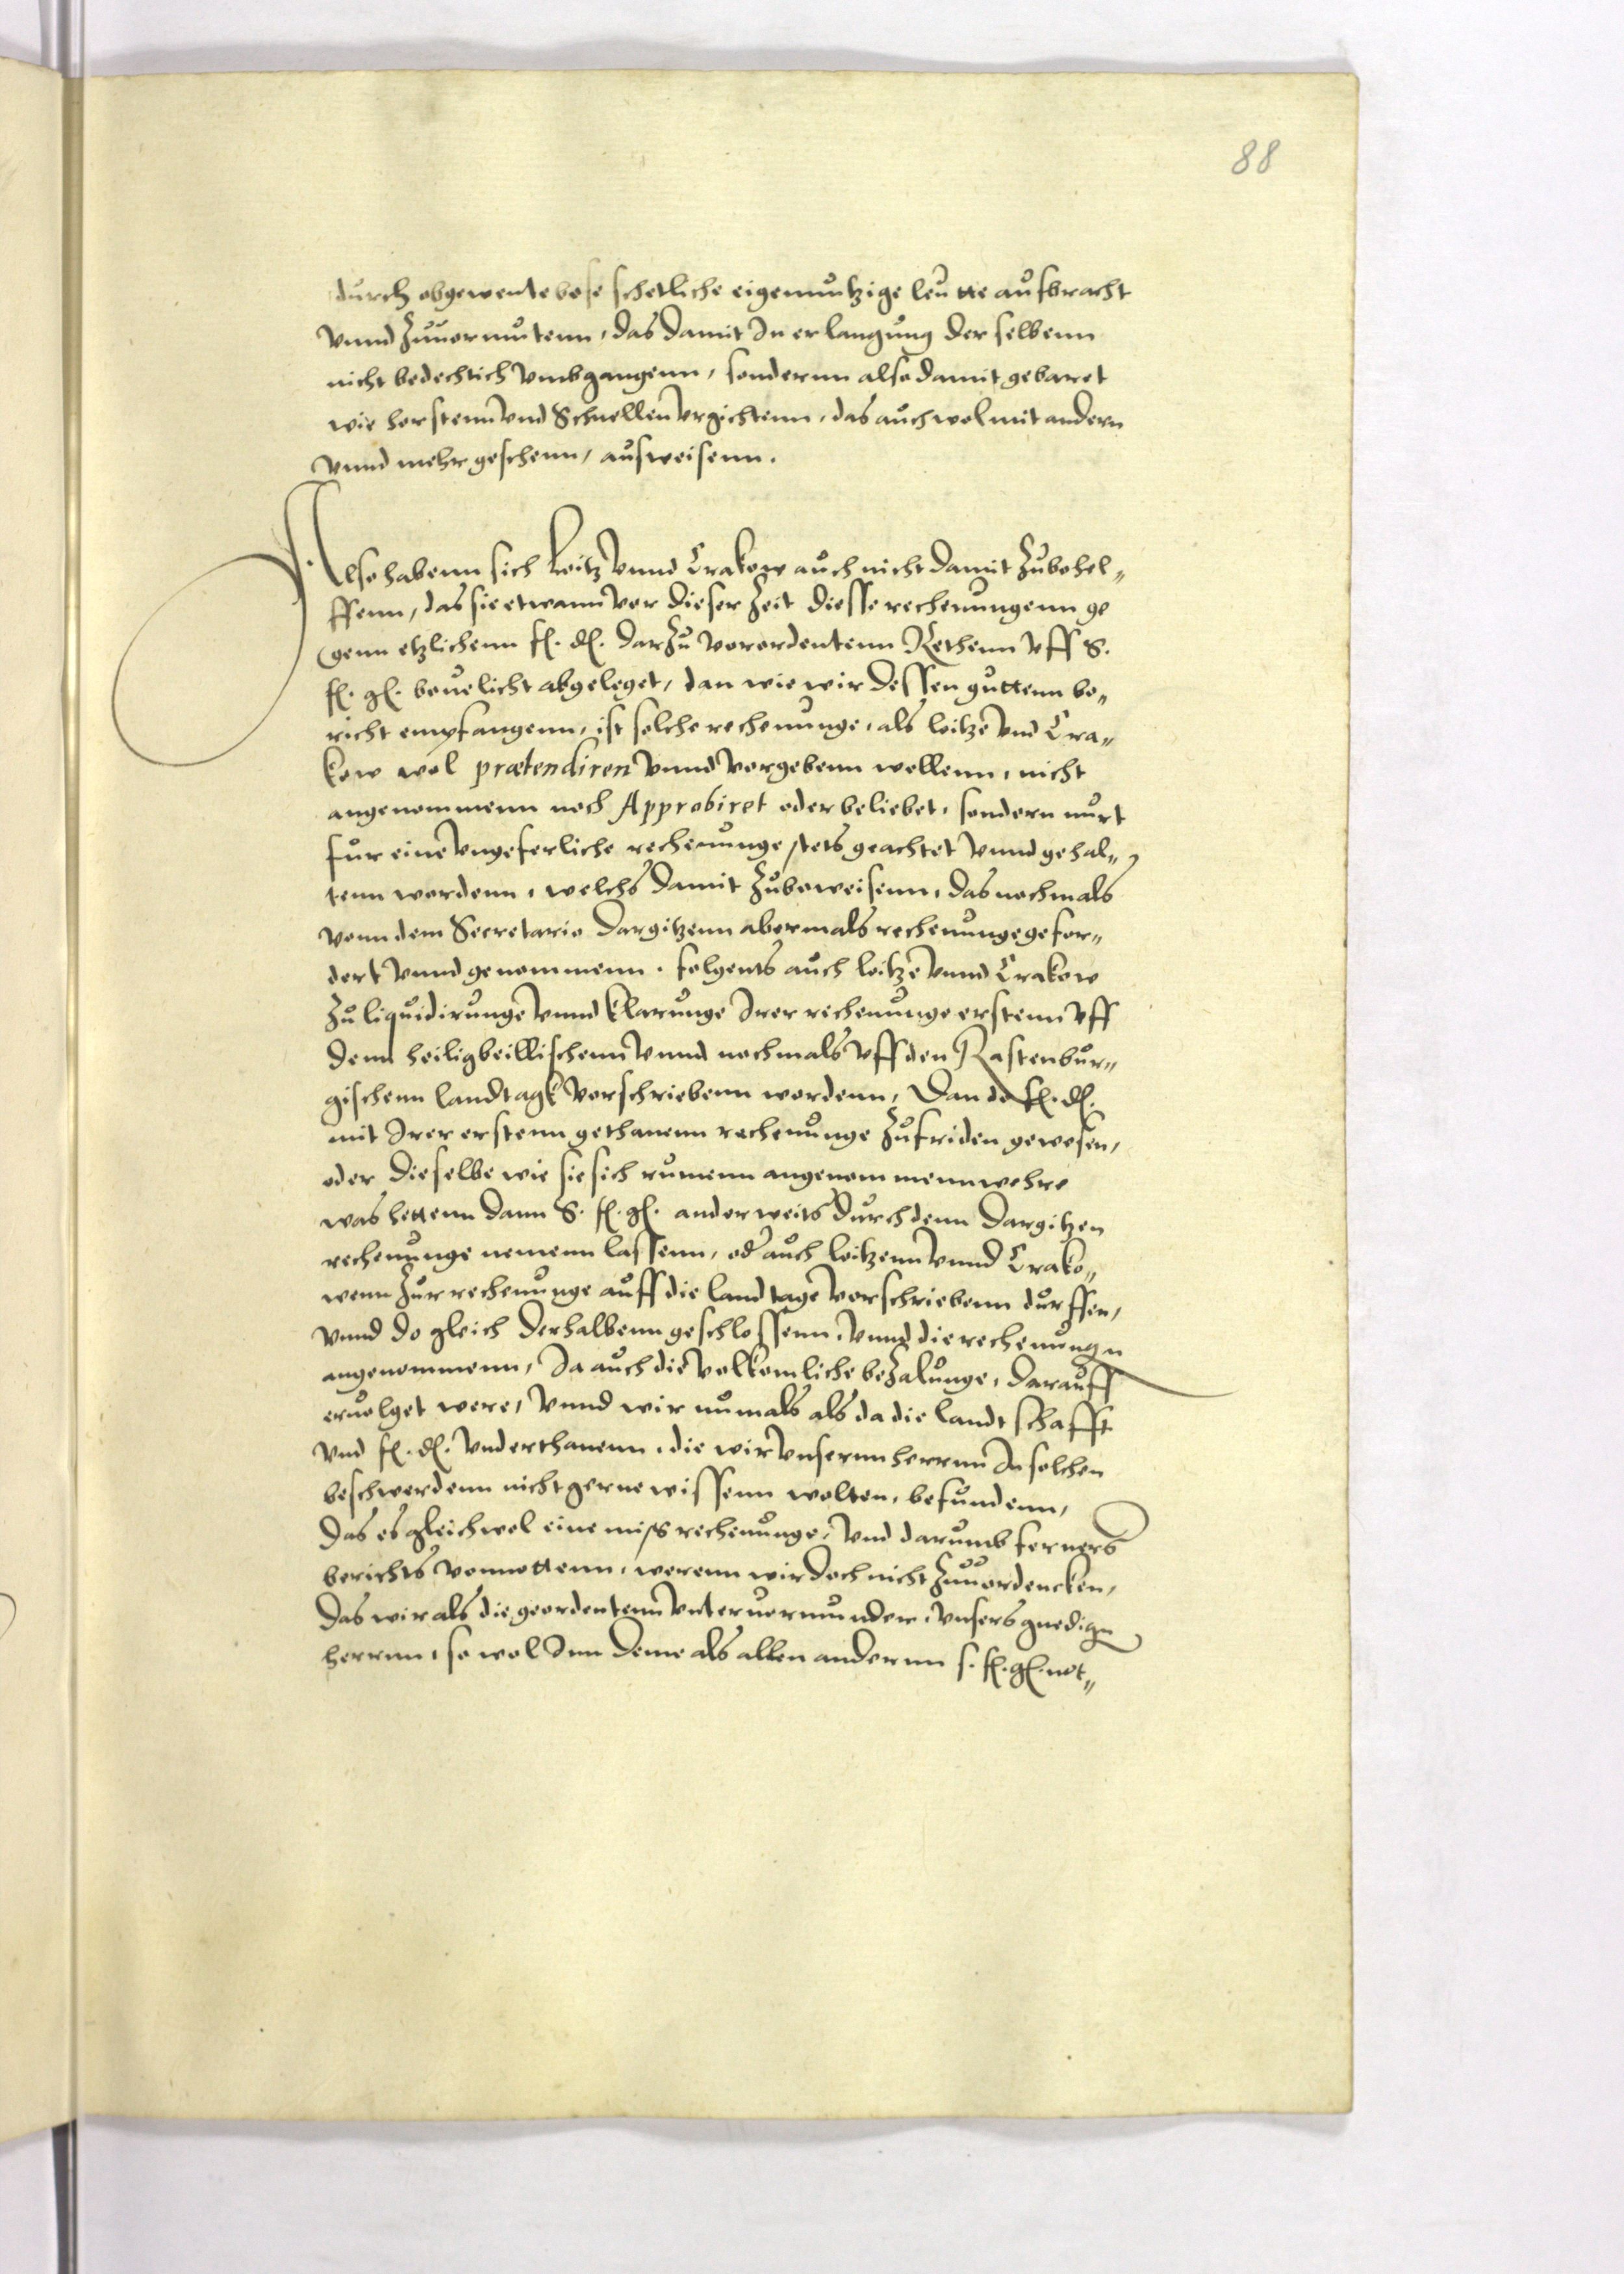 88
durch obgewente bose schetliche eigennutzige leutte aufbracht
vnnd zuuormutenn, das damit In erlangung derselbenn
nicht bedechtich vmbgangenn, sondernn also damit gebaret
wie horstenn vnd Schnellen vrgichtenn, das auch wol mit andern
vnnd mehr geschenn, ausweisenn.
Also habenn sich Loitz vnnd Crakow auch nicht damit zubehel„
ffenn, das sie etwann vor dieser Zeit diesse rechenungenn ge
genn etzlichenn f. d. darzu vorordentenn Rethenn vff S.
f. g. beuelicht abgeleget, dan wie wir dessen guttenn be„
richt empfangenn, ist solche rechenunge, als loitze vnd Cra„
kow wol prætendiren vnnd vorgebenn wollenn, nicht
angenommenn noch Approbiret oder beliebet, sondern nurt
fur eine vngeferliche rechenunge stets geachtet vnnd gehal„
tenn wordenn, welchs damit zubeweisenn, das nochmals
vonn dem Secretario Dargitzenn abermals rechenunge gefor„
dert vnnd genommenn. folgents auch loitze vnnd Crakow
zu liquidirunge vnnd klarunge Irer rechenunge erstenn vff
denn heiligbeillischenn vnnd nochmals vff den Rastenbur„
gischenn landtagk vorschriebenn wordenn, Dan do f. d.
mit Irer erstenn gethanenn rechenunge zufriden gewesen,
oder dieselbe wie sie sich rumenn angenommenn wehre
was hettenn dann S. f. g. anderweits durch denn Dargitzen
rechenunge nemenn lassenn, od auch loitzenn vnnd Crako„
wenn zur rechenunge auff die landtage vorschriebenn durffen,
vnnd do gleich derhalbenn geschlossenn, vnnd die rechenungn
angenommenn, Ja auch die volkomliche bezalunge, darauff
eruolget were, vnnd wir numals als da die landtschafft
vnd f. d. vnderthanenn, die wir vnsernn herrnn In solchen
beschwerdenn nicht gerne wissenn wolten, befundenn,
das es gleichwol eine missrechenunge, vnd darumb ferners
berichts vonnottenn, werenn wir doch nicht zuuordencken,
das wir als die geordentenn vnteruormunder, vnsers gnedign
herrnn, so wol Inn deme als allen andernn s. f. g. not„